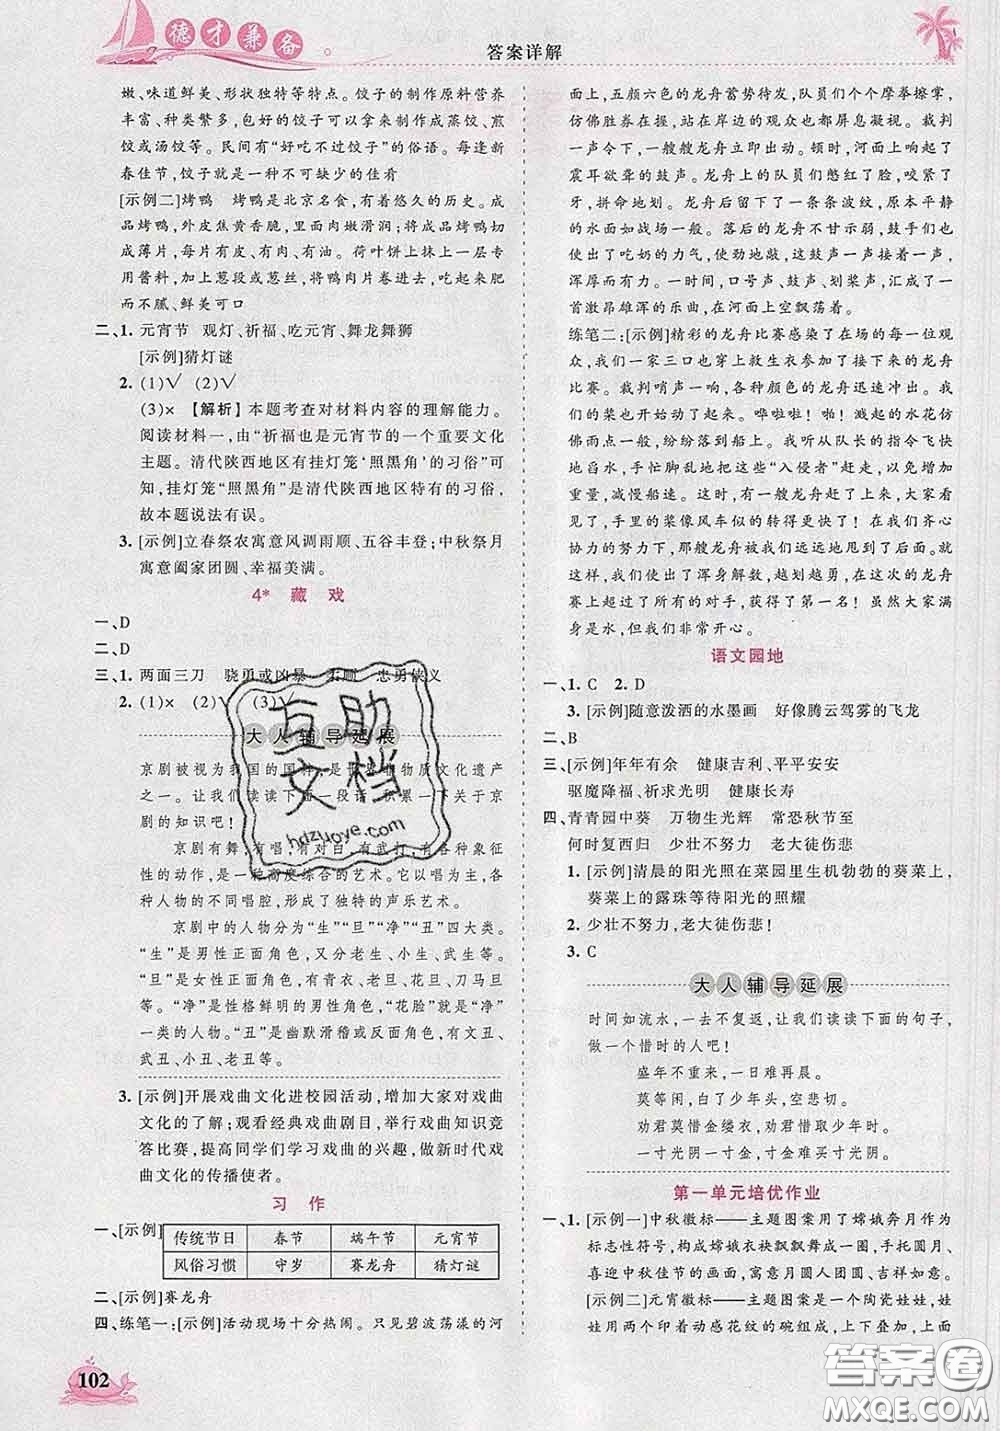 德才兼备
答案详解
嫩、味道鲜美、形状独特等特点。饺子的制作原料营养
丰富、种类繁多，包好的饺子可以拿来制作成蒸饺、煎
饺或汤饺等。民间有“好吃不过饺子”的俗语。每逢新
春佳节，饺子就是一种不可缺少的佳肴
[示例二]烤鸭　烤鸭是北京名食，有着悠久的历史。成
品烤鸭，外皮焦黄香脆，里面肉嫩滑润；将成品烤鸭切
成薄片，每片有皮、有肉、有油。荷叶饼上抹上一层专
用酱料，加上葱段或葱丝，将鸭肉片卷进去，吃起来肥
而不腻、鲜美可口
二、1. 元宵节　观灯、祈福、吃元宵、舞龙舞狮
[示例]猜灯谜
2. (1)√　(2)√
(3)×　【解析】本题考查对材料内容的理解能力。
阅读材料一，由“祈福也是元宵节的一个重要文化
主题。清代陕西地区有挂灯笼‘照黑角’的习俗”可
知，挂灯笼“照黑角”是清代陕西地区特有的习俗，
故本题说法有误。
3. [示例]立春祭农寓意风调雨顺、五谷丰登；中秋祭月
寓意阖家团圆、幸福美满。
4* 藏　戏
一、D
二、D
三、1. 两面三刀　骁勇或凶暴　柔顺　忠勇侠义
2. (1)×　(2)√　(3)√
大人辅导延展
京剧被视为我国的国粹，是世界非物质文化遗产
之一。让我们读读下面一段话，积累一下关于京
剧的知识吧！
京剧有舞，有唱，有对白，有武打，有各种象征
性的动作，是一种高度综合的艺术。它们以各种人
物的不同唱腔，形成了独特的声乐艺术。
京剧中的人物分为“生”“旦”“净”“丑”四大类。
“生”是男性正面角色，又分老生、小生、武生等。
“旦”是女性正面角色，有青衣、老旦、花旦、刀马旦
等。“净”是性格鲜明的男性角色，“花脸”就是这一
类的人物。“丑”是幽默滑稽或反面角色，有文丑、
武丑、小丑、老丑等。
3. [示例]开展戏曲文化进校园活动，增加大家对戏曲
文化的了解；观看经典戏曲剧目，举行戏曲知识竞
答比赛，提高同学们学习戏曲的兴趣，做新时代戏
曲文化的传播使者。
习　作
一、[示例]
传统节日　春节　端午节　元宵节
风俗习惯　守岁　赛龙舟　猜灯谜
二、[示例]赛龙舟
四、练笔一：[示例]活动现场十分热闹。只见碧波荡漾的河
102
面上，五颜六色的龙舟蓄势待发，队员们个个摩拳擦掌，
仿佛胜券在握，站在岸边的观众也都屏息凝视。裁判
一声令下，一艘艘龙舟立即出动。顿时，河面上响起了
震耳欲聋的鼓声。龙舟上的队员们憋红了脸，咬紧了
牙，拼命地划。龙舟后面留下了一条条波纹，原本平静
的水面如战场一般。落后的龙舟不甘示弱，鼓手们也
使出了吃奶的力气，使劲地敲，这鼓声一声连着一声，
浑厚而有力。一时间，口号声、鼓声、划桨声汇成了一
首激昂雄浑的乐曲，在河面上空飘荡着。
练笔二：[示例]精彩的龙舟比赛感染了在场的每一位观
众，我们一家三口也穿上救生衣参加了接下来的龙舟
比赛。裁判哨声一响，各种颜色的龙舟迅速冲出。我
们的桨也一起划动了起来。哗啦啦！啪！溅起的水花仿
佛雨点一般，纷纷落到船上。我们从队长的指令飞快
地舀水，手忙脚乱地把这些“入侵者”赶走，以免增加
重量，减慢船速。这时，有一艘龙舟赶了上来，大家看
到了，手里的桨像风车似的转得更快了！在我们齐心
协力的努力下，那艘龙舟被我们远远地甩到了后面。就
这样，我们使出了浑身解数，越划越勇，在这次的龙舟
赛上超过了所有的对手，获得了第一名！虽然大家满
身是水，但我们非常开心。
语文园地
一、1. C　2. D
3. [示例]随意泼洒的水墨画　好像腾云驾雾的飞龙
二、B
三、[示例]年年有余　健康吉利、平平安安
驱魔降福、祈求光明　健康长寿
四、青青园中葵　万物生光辉　常恐秋节至
何时复西归　少壮不努力　老大徒伤悲
1. [示例]清晨的阳光照在菜园里生机勃勃的葵菜上，
葵菜上的露珠等待阳光的照耀
2. 少壮不努力，老大徒伤悲！
3. C
大人辅导延展
时间如流水，一去不复返，让我们读读下面的句子，
做一个惜时的人吧！
盛年不重来，一日难再晨。
莫等闲，白了少年头，空悲切。
劝君莫惜金缕衣，劝君惜取少年时。
一寸光阴一寸金，寸金难买寸光阴。
第一单元培优作业
一、1. [示例一]中秋徽标——主题图案用了嫦娥奔月作为
标志性符号，构成嫦娥衣袂飘飘舞动、手托圆月、
喜迎中秋佳节的画面，寓意月圆人团圆、吉祥如意。
[示例二]元宵徽标——主题图案是一个陶瓷娃娃，娃
娃用两个印着动感花纹的碗，上下叠加，上面
互助文档
hdzuoye.com
答案卷
MXQE.COM